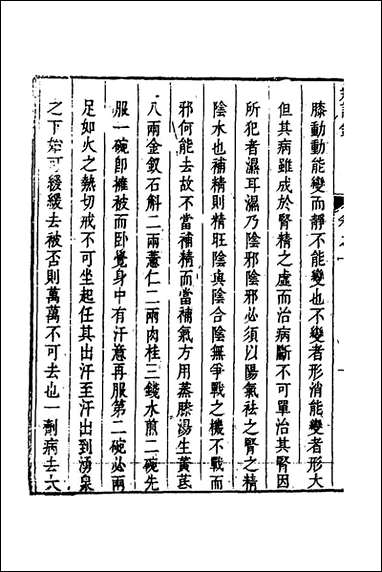 膝動動能變而靜不能變也不變者形消能變者形大
但其病雖成於腎精之虛而治病斷不可單治其腎因
所犯者濕耳濕乃陰邪陰邪必須以陽氣祛之腎之精
陰水也補精則精旺陰與陰合陰無爭戰之機不戰而
邪何能去故不當補精而當補氣方用蒸膝湯生黃芪
八兩金釵石斛二兩薏仁二兩肉桂三錢水煎二碗先
服一碗卽擁被而卧覺身中有汗意再服第二碗必兩
足如火之熱切戒不可坐起任其出汗至汗出到湧泉
之下始可緩緩去被否則萬萬不可去也一劑病去大